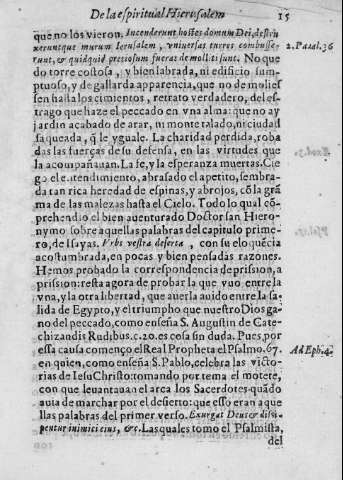 De la espiritual Hierusalem 15
que no los vieron. Incenderunt hostes domum Dei, destru
xeruntque murum Ierusalem, vniuersas turres combusse-
runt, & quidquid pretiosum fuerat demolliti sunt. No que
do torre costosa, y bien labrada, ni edificio sum-
ptuoso, y de gallarda apparencia, que no de molies
sen hasta los cimientos, retrato verdadero, del es-
trago que haze el peccado en vna alma: que no ay
jardin acabado de arar, ni monte talado, ni ciudad
saqueada, q̃ le yguale. La charidad perdida, roba
das las fuerças de su defensa, en las virtudes que
la acompañauan. La fe, y la esperanza muertas. Cie
go el entendimiento, abrasado el apetito, sembra-
da tan rica heredad de espinas, y abrojos, cõ la grã
ma de las malezas hasta el Cielo. Todo lo qual cõ-
prehendio el bien auenturado Doctor san Hiero-
nymo sobre aquellas palabras del capitulo prime-
ro, de Isayas. Vrbs vestra deserta, con su eloquẽcia
acostumbrada, en pocas y bien pensadas razones.
Hemos probado la correspondencia de prision, a
prision: resta agora de probar la que vuo entre la
vna, y la otra libertad, que auerla auido entre la sa-
lida de Egypto, y el triumpho que nuestro Dios ga-
no del peccado, como enseña S. Augustin de Cate-
chizandis Rudibus. c. 20. es cosa sin duda. Pues, por
essa causa començo el Real Propheta el Psalmo. 67.
en quien, como enseña S. Pablo, celebra las victo-
rias de Iesu Christo: tomando por tema el motete,
con que leuantauan el arca los Sacerdotes quãdo
auia de marchar por el desierto: que esso eran aque
llas palabras del primer verso. Exurgat Deus & dissi-
pentur inimici eius, &c. Las quales tomo el Psalmista,
del
2. Paral. 36
Ad Eph. 4.